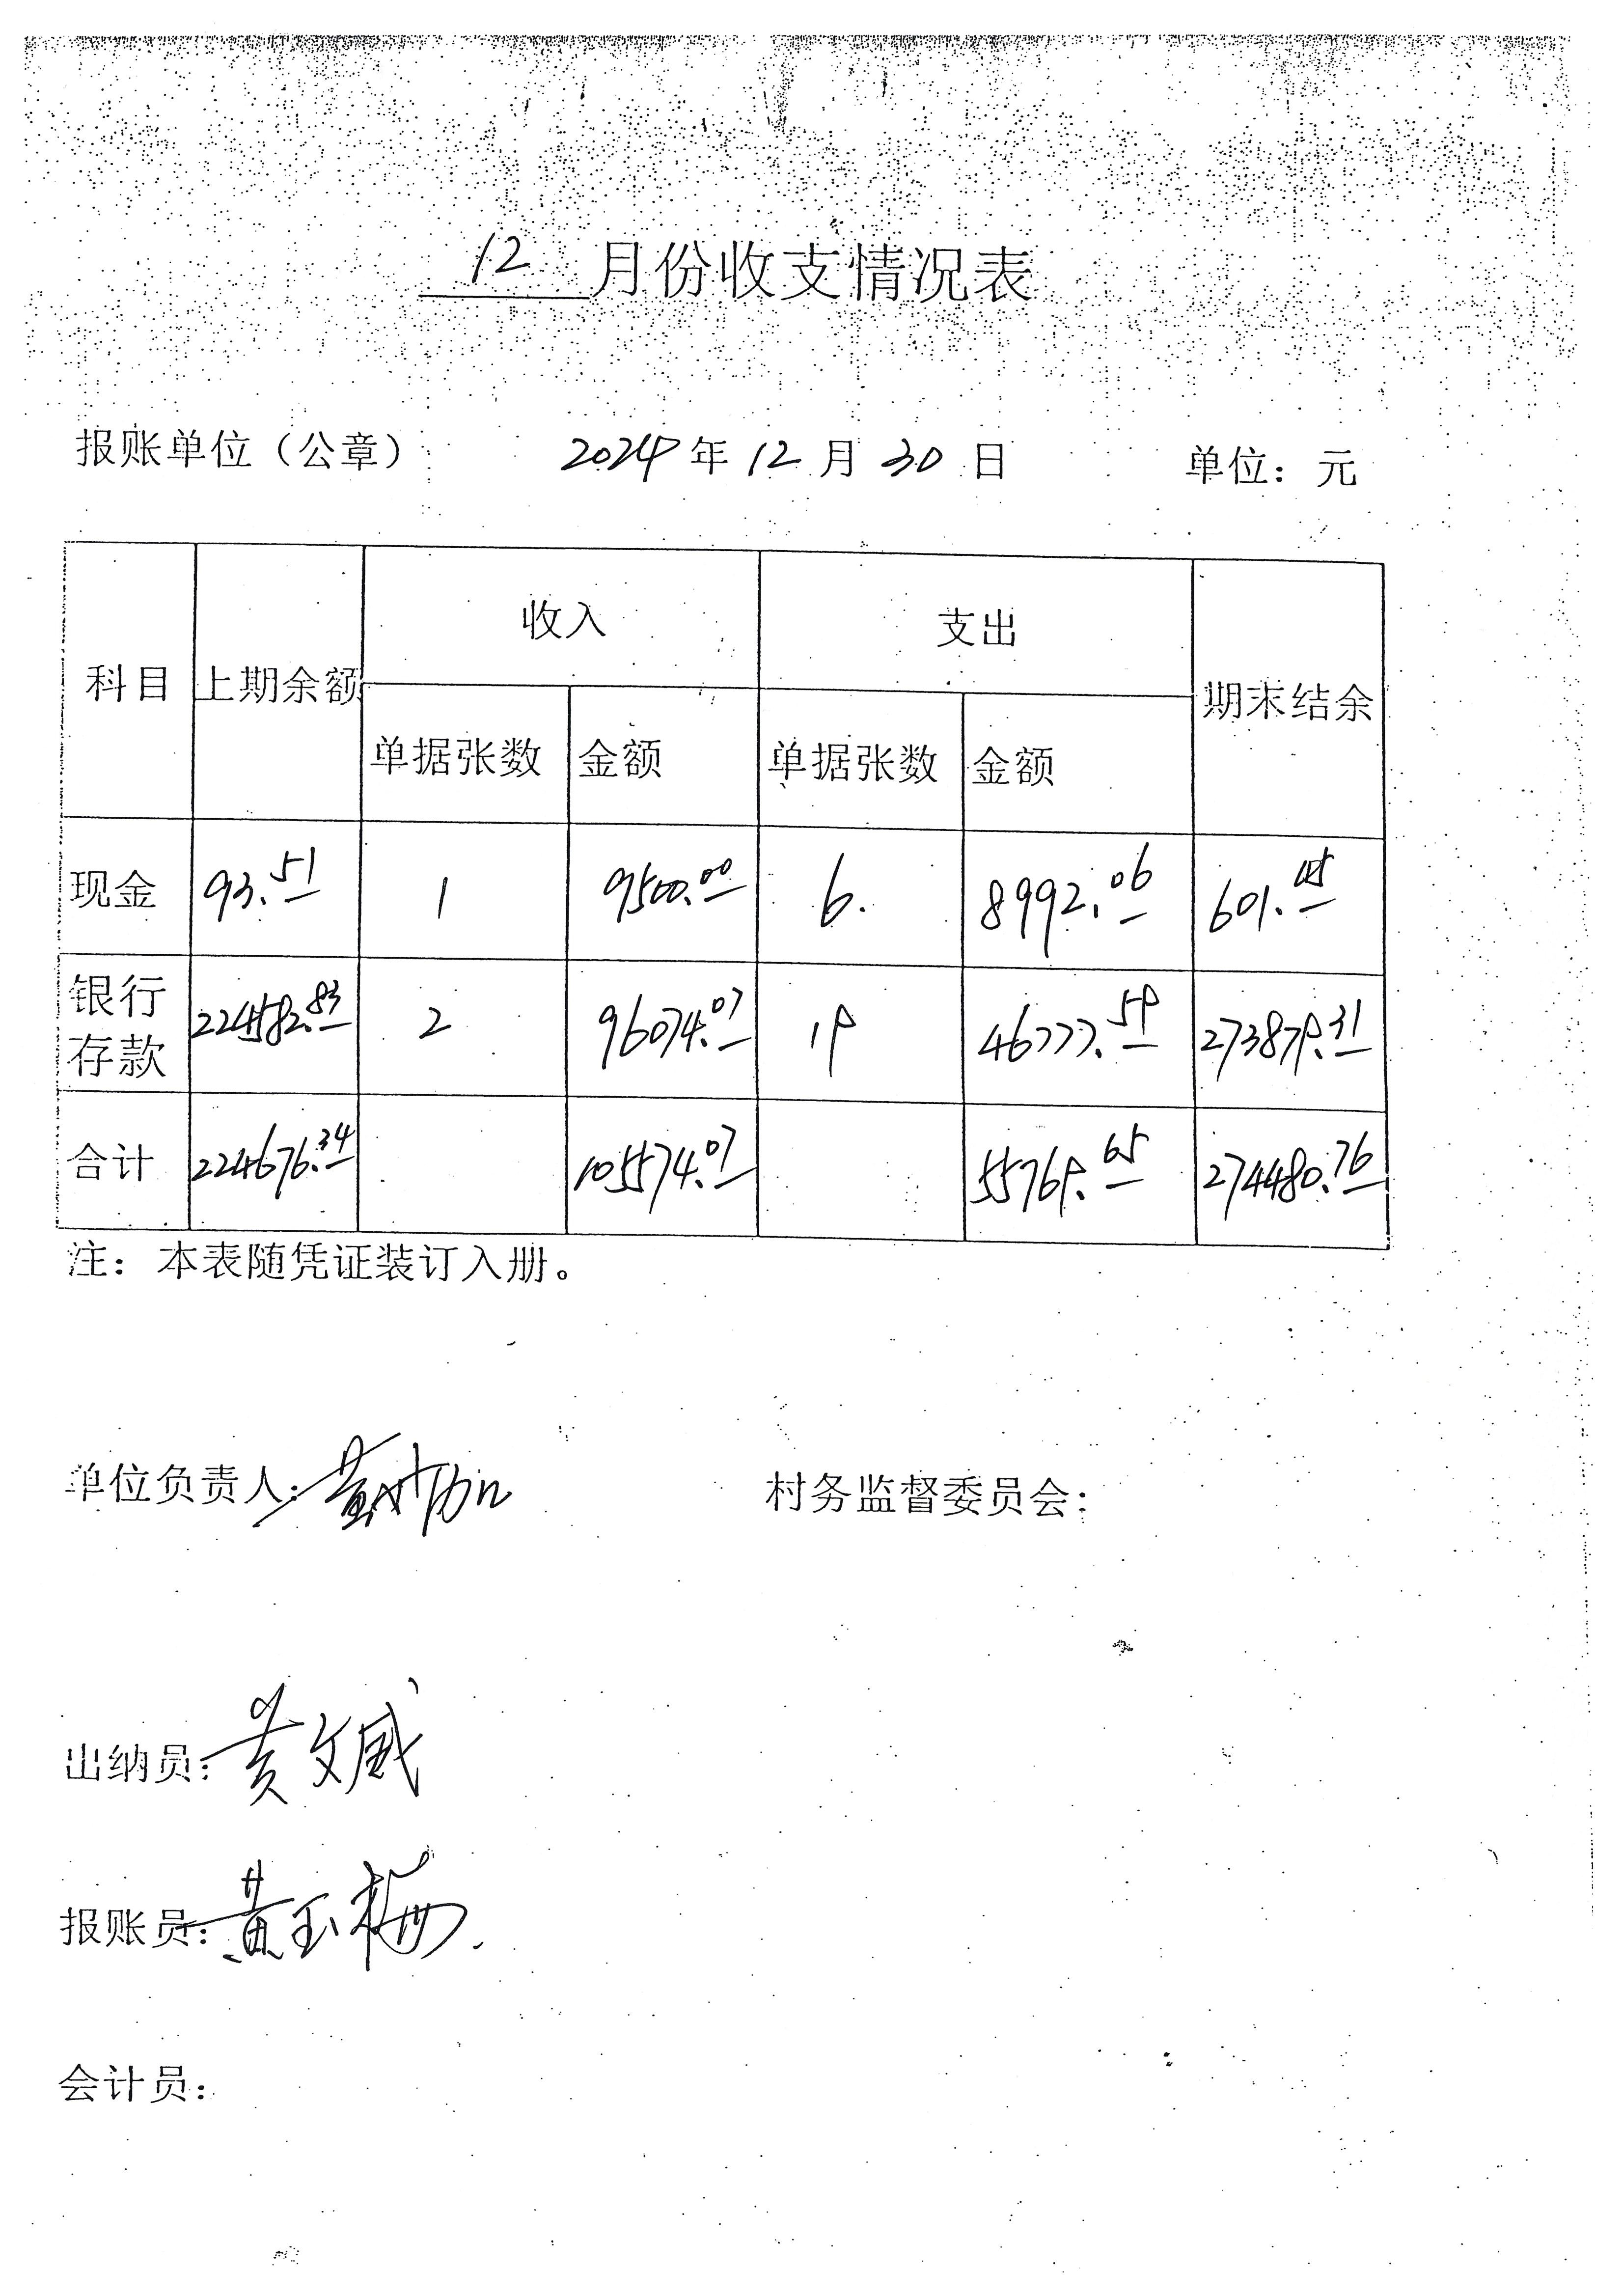 12 月份收支情况表
报账单位（公章） 2024 年 12 月 30 日 单位：元
科目 上期余额 收入 支出 期末结余
单据张数 金额 单据张数 金额
现金 93.51 1 9500.00 6. 8992.06 601.45
银行存款 224582.83 2 96074.07 19 46777.59 273879.31
合计 224676.34 105574.07 55769.65 274480.76
注：本表随凭证装订入册。
单位负责人： 村务监督委员会：
出纳员：黄文威
报账员：黄玉梅
会计员：